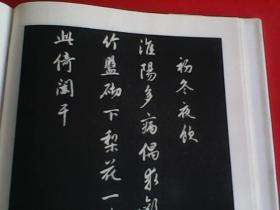 初冬夜飲
淮陽多病偶求歡
竹盤砌下梨花一
此倚闌干